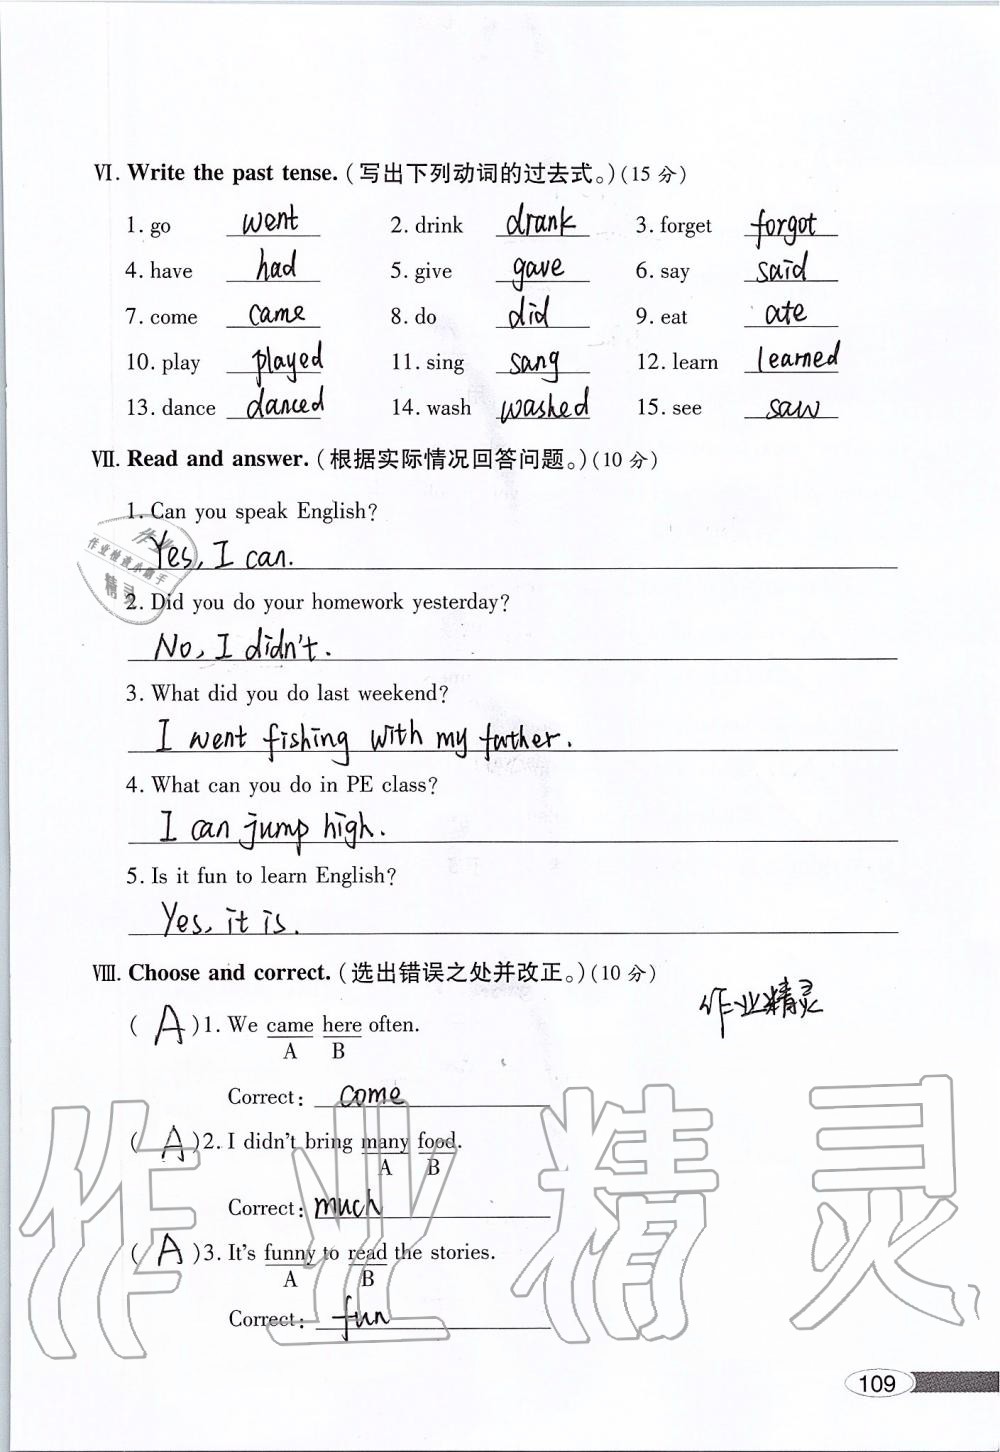 Ⅵ. Write the past tense.(写出下列动词的过去式。)(15 分)
1. go went 2. drink drank 3. forget forgot
4. have had 5. give gave 6. say said
7. come came 8. do did 9. eat ate
10. play played 11. sing sang 12. learn learned
13. dance danced 14. wash washed 15. see saw
Ⅶ. Read and answer.(根据实际情况回答问题。)(10 分)
1. Can you speak English?
Yes, I can.
作业
作业检查小助手
精灵
2. Did you do your homework yesterday?
No, I didn't.
3. What did you do last weekend?
I went fishing with my father.
4. What can you do in PE class?
I can jump high.
5. Is it fun to learn English?
Yes, it is.
Ⅷ. Choose and correct.(选出错误之处并改正。)(10 分)
作业精灵
( A )1. We came here often.
A B
Correct: come
( A )2. I didn't bring many food.
A B
Correct: much
( A )3. It's funny to read the stories.
A B
Correct: fun
作业精灵
109